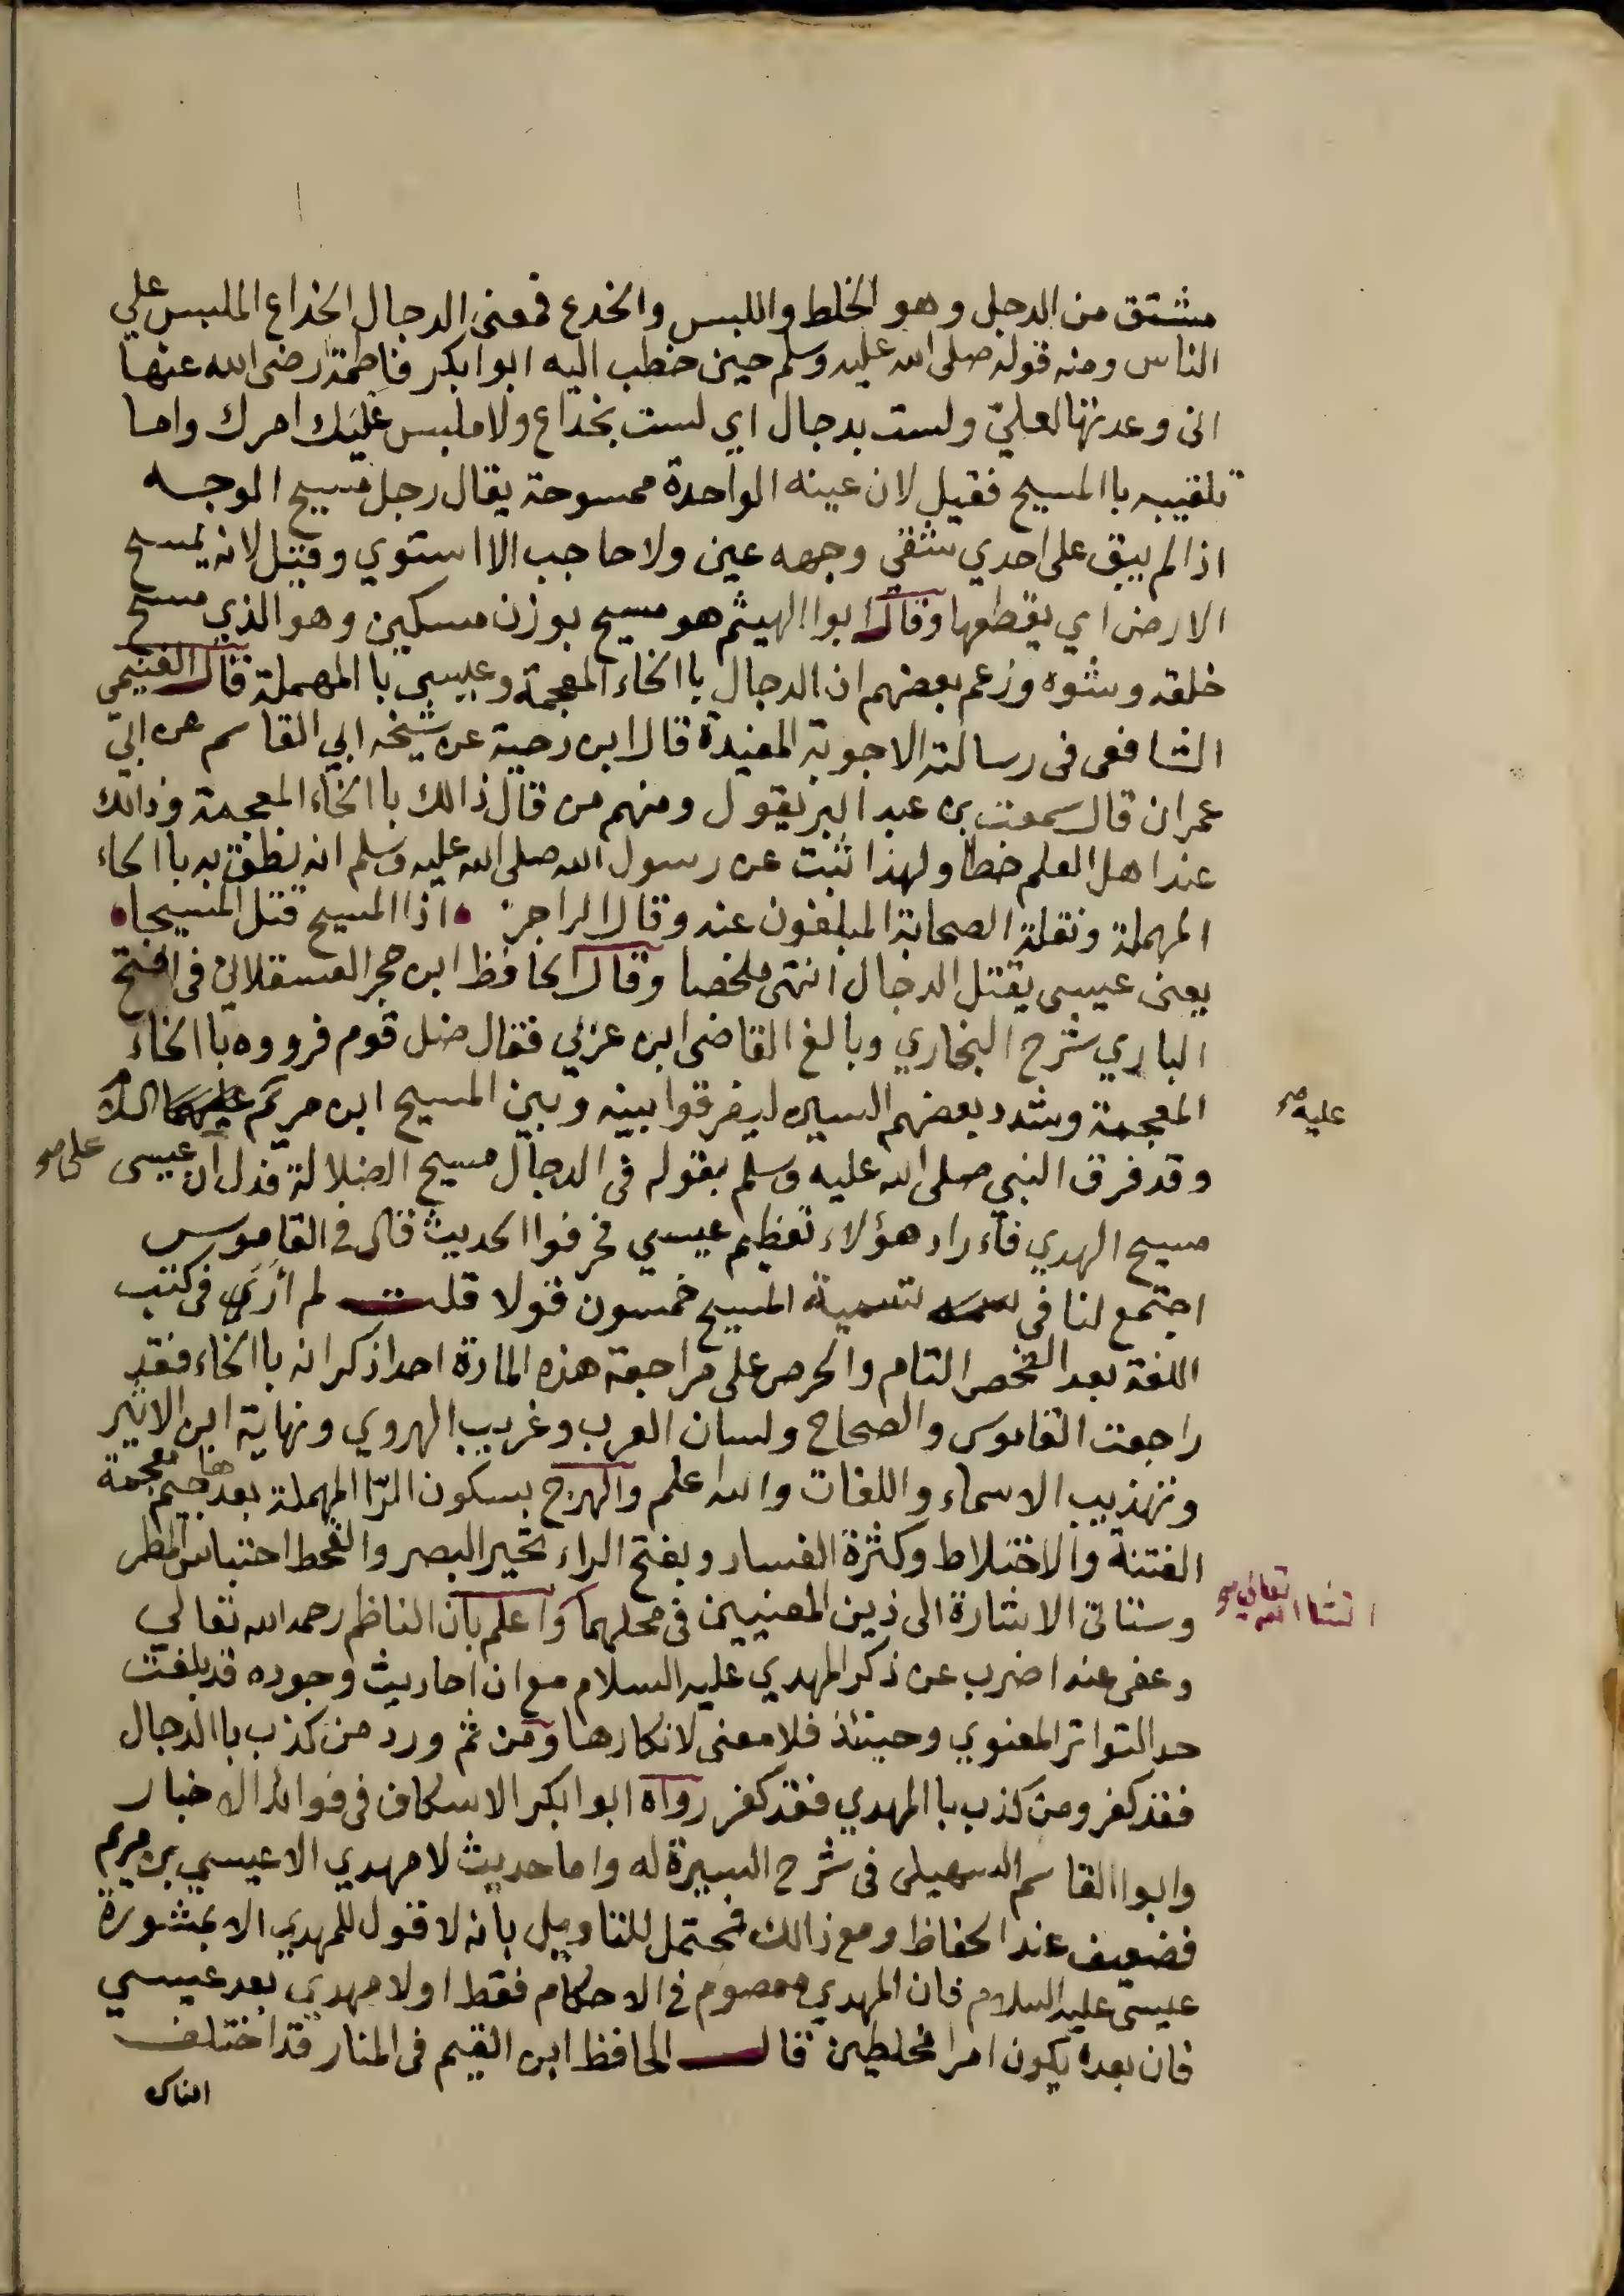 مشتق من الدجل وهو الخلط واللبس والخدع فمعنى الدجال الخداع الملبس علي
الناس ومنه قوله صلى الله عليه وسلم حين خطب اليه ابو ابكر فاطمة رضى الله عنها
انى وعدتها لعليّ ولست بدجال اي لست بخداع ولا ملبس عليك امرك واما
تلقيبه باالمسيح فقيل لان عينه الواحدة ممسوحة يقال رجل مسيح الوجه
اذا لم يبق على احدي شقي وجهه عين ولا حاجب الا استوي وقيل لانه يمسح
الارض اي يقطعها وقال ابوا الهيثم هو مسيح بوزن مسكين وهو الذي مسح
خلقه وشوه وزعم بعضهم ان الدجال باالخاء المعجمة وعيسى باالمهملة قال الغنيمي
الشافعى فى رسالته الاجوبة المفيدة قال ابن دحية عن شيخه ابي القاسم عن ابي
عمران قال سمعت بن عبد البر يقول ومنهم من قال ذالك باالخاء المعجمة وذالك
عند اهل العلم خطأ ولهذا ثبت عن رسول الله صلى الله عليه وسلم انه نطق به باالحاء
المهملة ونقلة الصحابة المبلغون عنه وقال الراجز اذا المسيح قتل المسيحا
يعنى عيسى يقتل الدجال انتهى ملخصا وقال الحافظ ابن حجر العسقلانى فى الفتح
البارى شرح البخاري وبالغ القاضى ابن عربى فقال ضل قوم فرووه باالخاء
المعجمة وشدد بعضهم السين ليفرقوا بينه وبين المسيح ابن مريم عليهما السلام
عليه صح
وقد فرق النبى صلى الله عليه وسلم بقوله فى الدجال مسيح الضلالة فدل ان عيسى
على صح
مسيح الهدي فأراد هؤلاء تعظيم عيسي فحرفوا الحديث قال فى القاموس
اجتمع لنا فى تسمية المسيح خمسون قولا قلت لم أرَى فى كتب
اللغة بعد الفحص التام والحرص على مراجعة هذه المادة احدا ذكر انه باالخاء فقد
راجعت القاموس والصحاح ولسان العرب وغريب الهروي ونهاية ابن الاثير
وتهذيب الاسماء واللغات والله اعلم والهرج بسكون الرّا المهملة بعدها جيم معجمة
الفتنة والاختلاط وكثرة الفساد وبفتح الراء تحير البصر والقحط احتباس المطر
وستاتى الاشارة الى ذين المعنيين فى محلهما واعلم بأن الناظم رحمه الله تعالي
انشا الله تعالى صح
وعفى عنه اضرب عن ذكر المهدي عليه السلام مع ان احاديث وجوده قد بلغت
حد التواتر المعنوي وحينئذ فلا معنى لانكارها ومن ثم ورد من كذب باالدجال
فقد كفر ومن كذب باالمهدي فقد كفر رواه ابو ابكر الاسكاف فى فوائد الاخبار
وابوا القاسم السهيلى فى شرح السيرة له واما حديث لا مهدي الا عيسي بن مريم
فضعيف عند الحفاظ ومع ذالك فمحتمل للتاويل بأنه لا قول للمهدي الا بمشورة
عيسى عليه السلام فان المهدي معصوم فى الاحكام فقط او لا مهدي بعد عيسي
فان بعده يكون امرا مخلطين قال الحافظ ابن القيم فى المنار قد اختلف
الناس